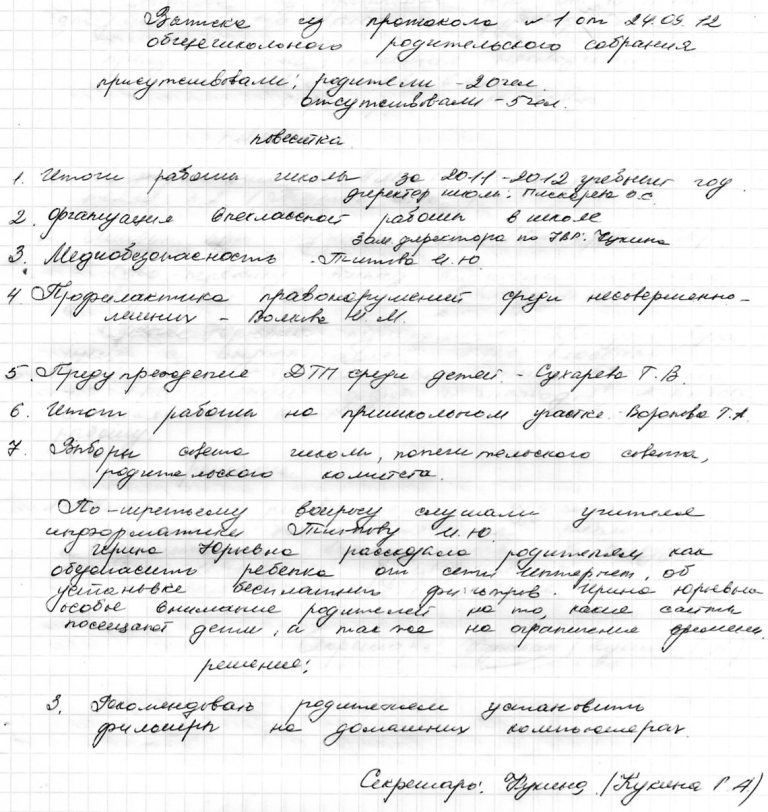 Выписка из протокола № 1 от 24.09.12
общешкольного родительского собрания
присутствовали: родители - 20 чел.
отсутствовали - 5 чел.
повестка
1. Итоги работы школы за 2011-2012 учебный год.
директор школы: О.С.
2. Организация внеклассной работы в школе
зам. директора по УВР: Кукина
3. Медиабезопасность - Титова И.Ю.
4 Профилактика правонарушений среди несовершенно-
летних - Волкова И.М.
5. Предупреждение ДТП среди детей. - Сухарева Т.В.
6. Итоги работы на пришкольном участке. Воронова Т.А.
7. Выборы совета школы, попечительского совета,
родительского комитета.
По-третьему вопросу слушали учителя
информатики Титову И.Ю.
Ирина Юрьевна рассказала родителям как
обезопасить ребенка от сети интернет, об
установке бесплатных фильтров. Ирина Юрьевна
особое внимание родителей на то, какие сайты
посещают дети, а так же на ограничение времени.
решение:
3. Рекомендовать родителям установить
фильтры на домашних компьютерах.
Секретарь: Кукина /Кукина Г А)